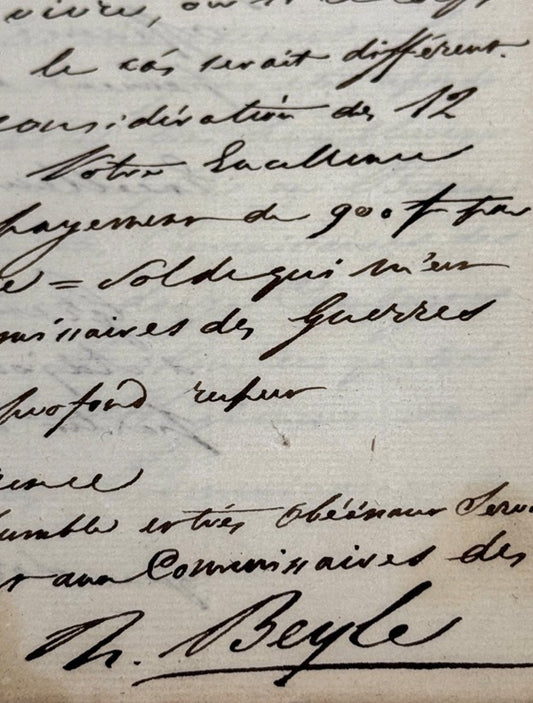 vivre, ou
le cas serait différent.
considération des 12
Votre Excellence
payement de 900 f par
e = solde qui m'est
missaires des Guerres
profond respect
lence
humble et très obéissant Serv
t aux Commissaires des
h. Beyle